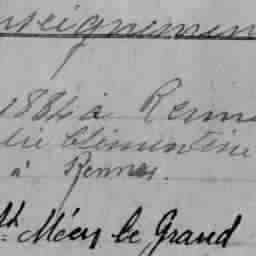 nseignemen
1884 à Renn
lie Clémentine
à Rennes.
th Méen le Grand